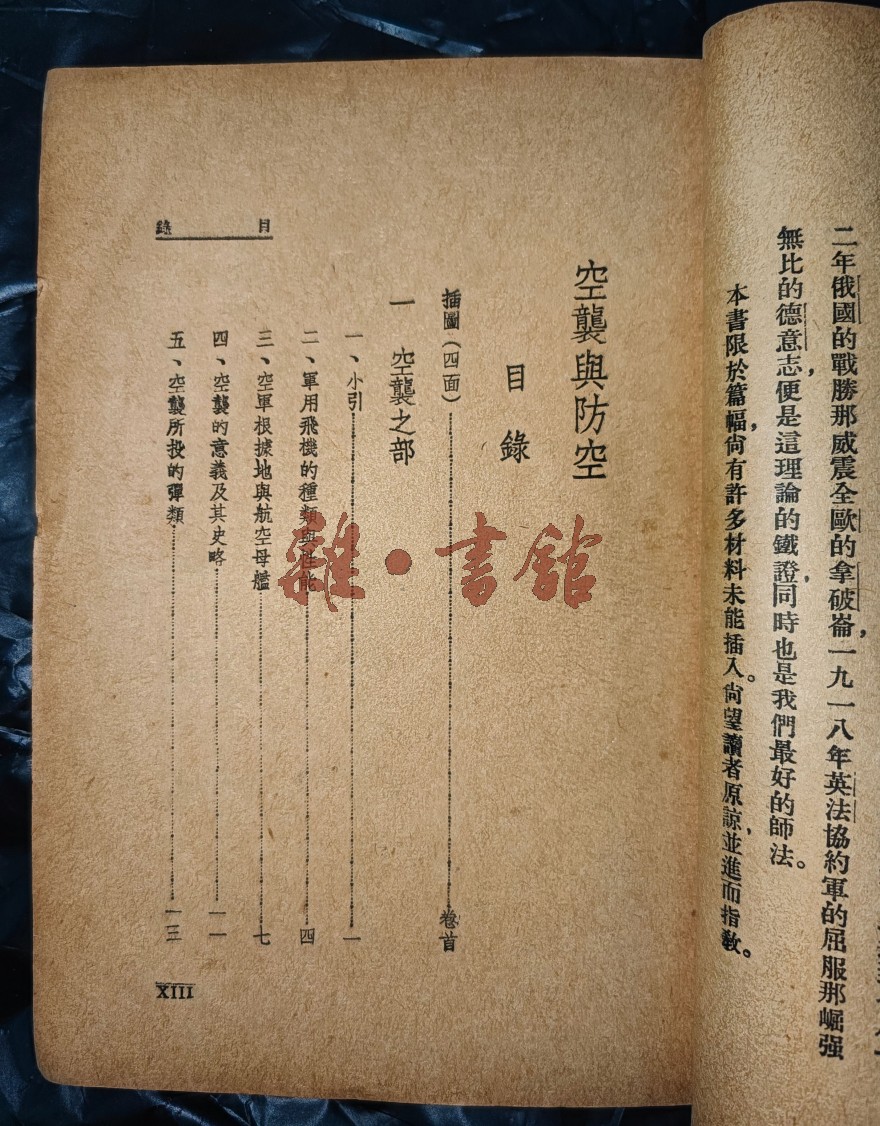 二年俄國的戰勝那威震全歐的拿破崙，一九一八年英法協約軍的屈服那崛强
無比的德意志，便是這理論的鐵證，同時也是我們最好的師法。
本書限於篇幅，尙有許多材料未能插入。尙望讀者原諒，並進而指敎。
空襲與防空
目錄
插圖（四面）……卷首
一　空襲之部
一、小引……一
二、軍用飛機的種類與性能……四
三、空軍根據地與航空母艦……七
四、空襲的意義及其史略……一一
五、空襲所投的彈類……一三
目錄
XIII
雜·書館